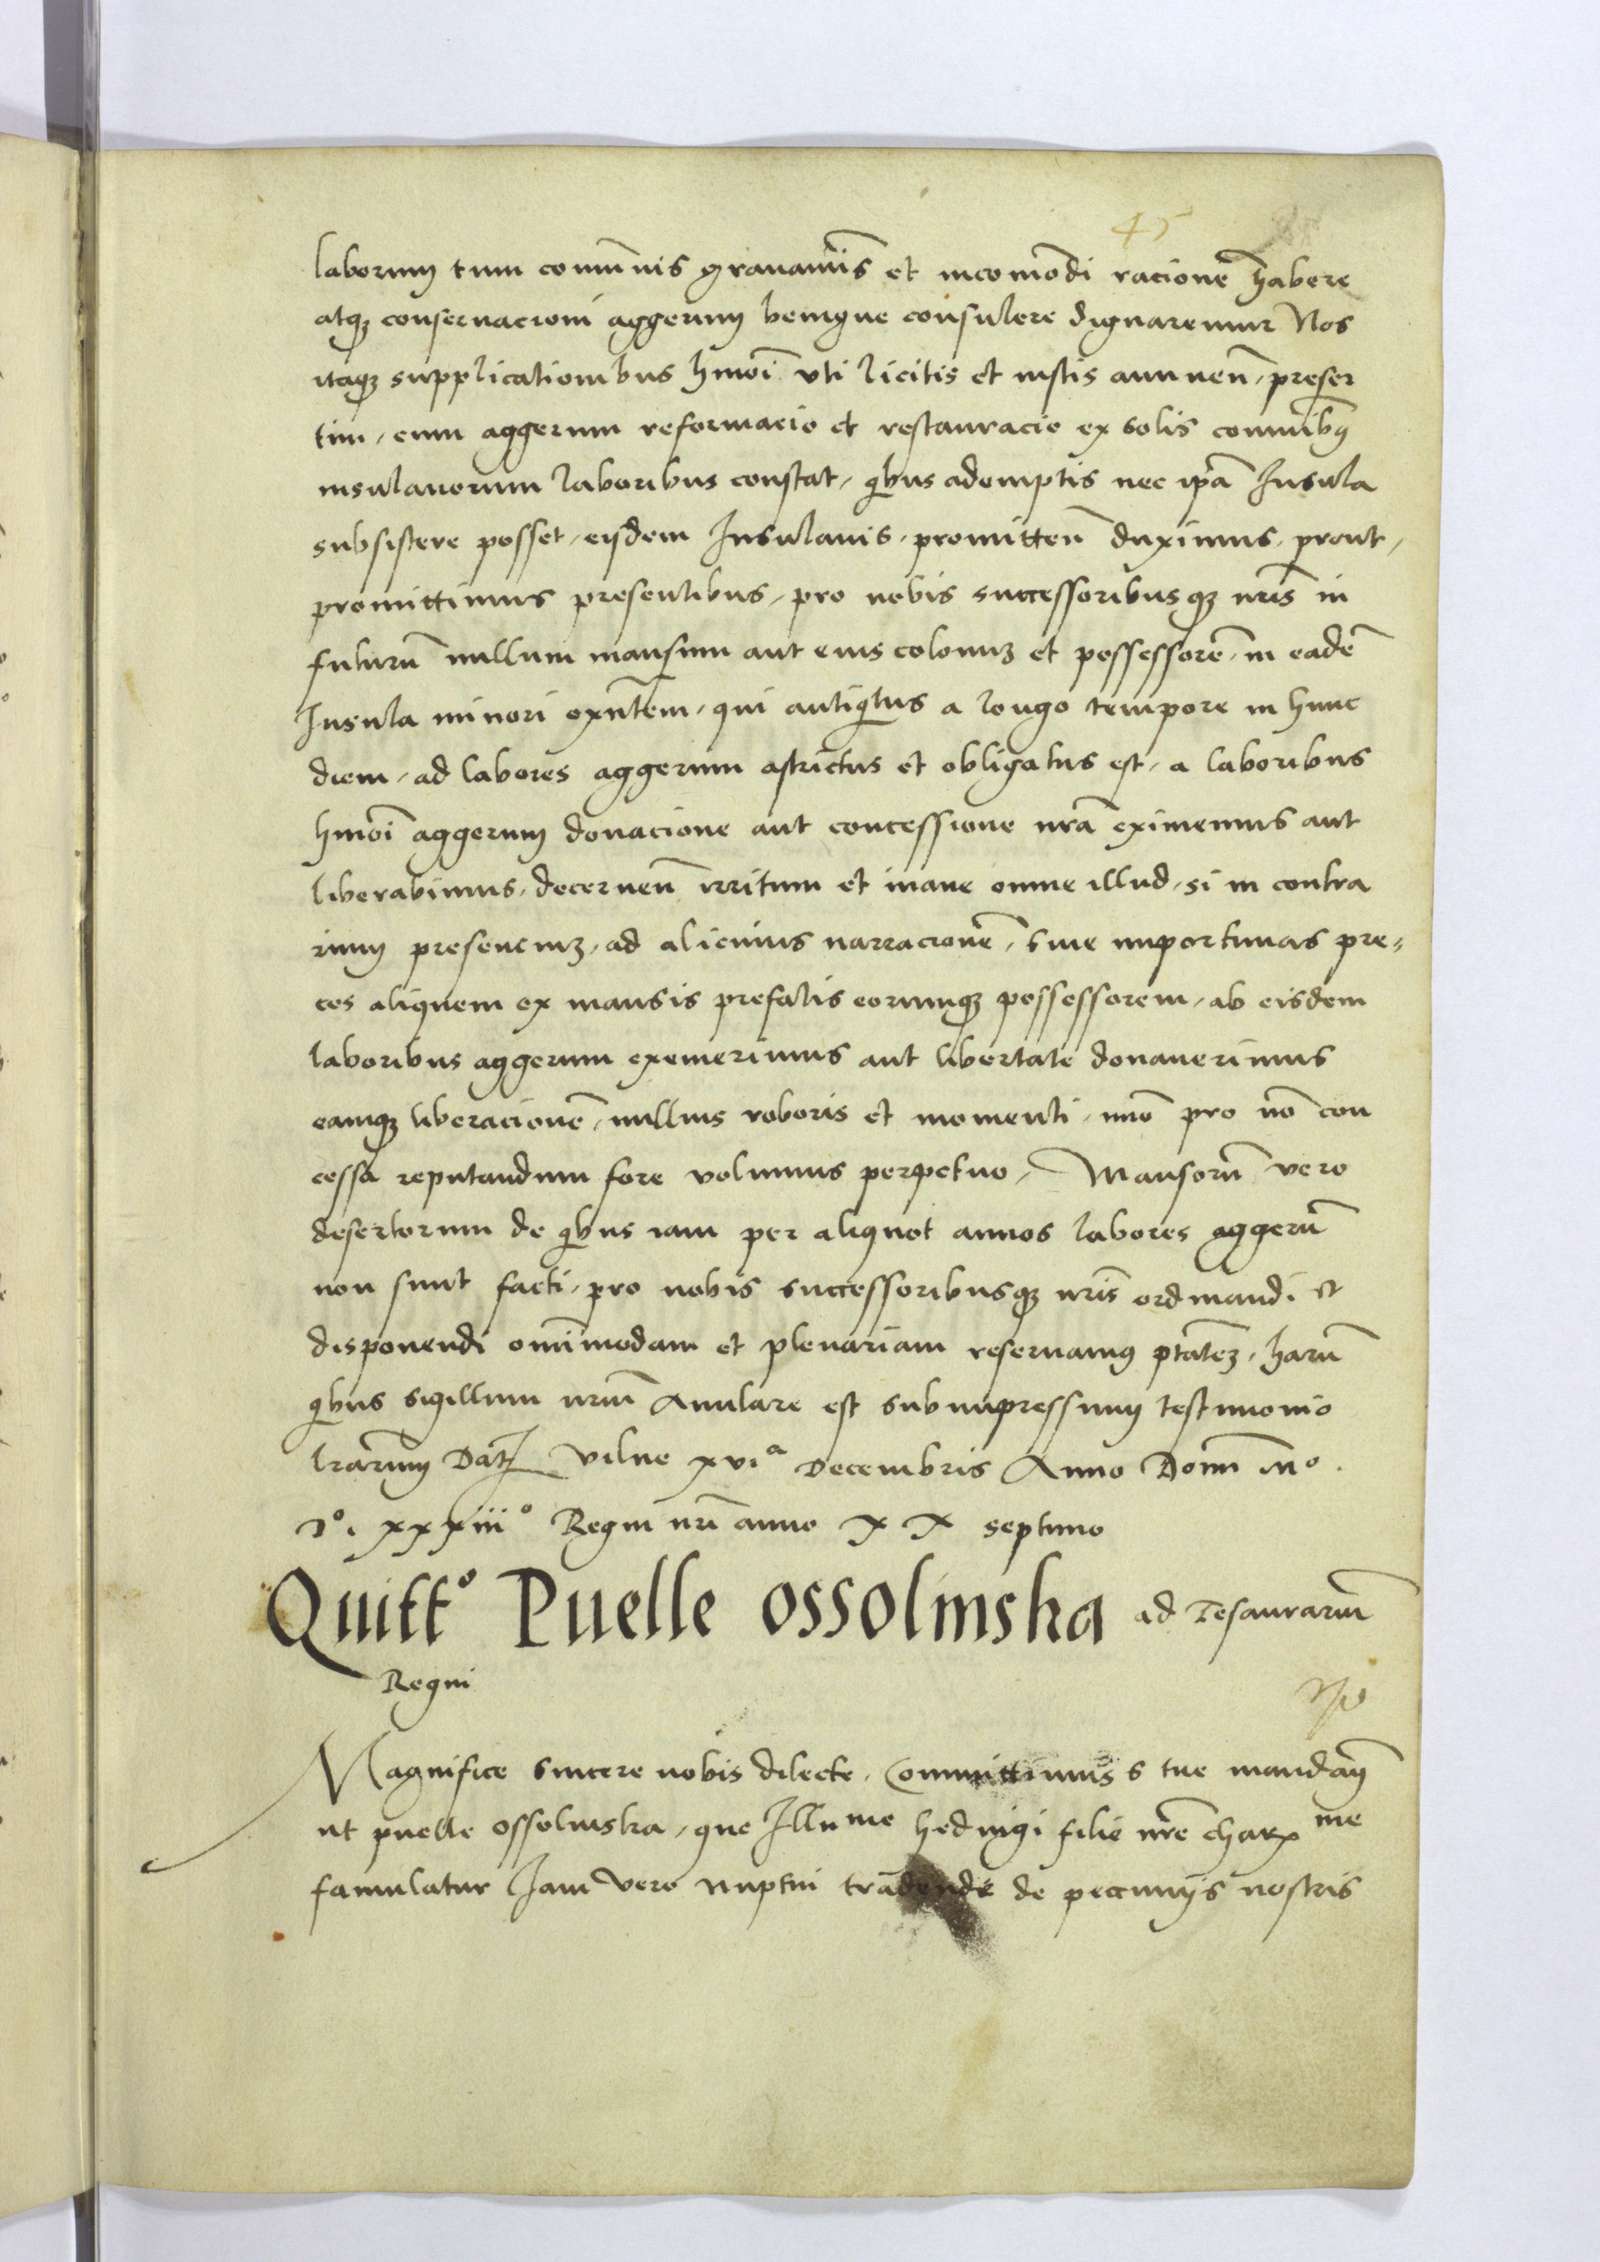 45
laborum tum com̄unis grauam̄is et incom̄odi racionē habere
atqꝫ conseruacioni aggerum benigne consulere dignaremur Nos
itaqꝫ supplicationibus hm̄oi vti licitis et iustis annuen̄, preser
tim, cum aggerum reformacio et restauracio ex solis comunibꝰ
insulanorum laboribus constat, qbus ademptis nec ip̄a Insula
subsistere posset, eisdem Insulanis, promitten̄ duximus, prout,
promittimus presentibus, pro nobis successoribusqꝫ nr̄is in
futurū nullum mansum aut eius colonuꝫ et possessorē, in eadē
Insula minori exn̄tem, qui antiqtus a longo tempore in hunc
diem, ad labores aggerum astrictus et obligatus est, a laboribus
hm̄oi aggerum donacione aut concessione nr̄a eximemus aut
liberabimus, decernen̄ irritum et inane omne illud, si in contra
rium presenciuꝫ, ad alicuius narracionē, siue importunas pre=
ces aliquem ex mansis prefatis eorumqꝫ possessorem, ab eisdem
laboribus aggerum exemerimus aut libertate donauerimus
eamqꝫ liberacionē, nullius roboris et momenti, imō pro nō con
cessa reputandum fore volumus perpetuo, Mansorū vero
desertorum de qbus iam per aliquot annos labores aggerū
non sunt facti, pro nobis successoribusqꝫ nr̄is ordinandi et
disponendi om̄imodam et plenariam reseruamꝰ ptāteꝫ, harū
qbus sigillum nr̄um Anulare est subimpressum testimonio
lr̄arum Dat̄ Vilne xvi.a Decembris Anno Domī Mo.
Do. xxxiiio Regni nr̄i anno XX septimo
Quitto Puelle Ossolinska ad Tesaurariū
Regni
Magnifice sincere nobis dilecte, Committimus S tue mandan̄
ut puelle ossolinska, que Illu me hedwigi filie nr̄e charx me
famulatur Iam vero nuptui tradende de pecuniis nostris